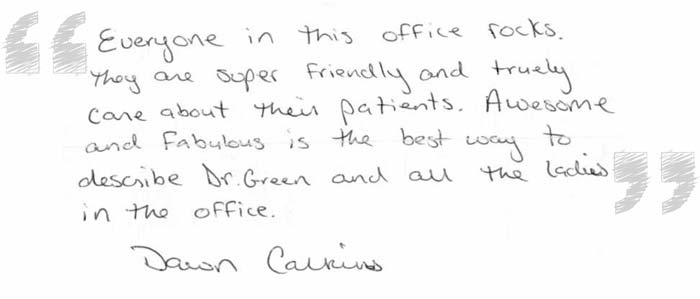 Everyone in this office rocks.
They are super friendly and truely
care about their patients. Awesome
and Fabulous is the best way to
describe Dr. Green and all the ladies
in the office.
Dawn Calkins